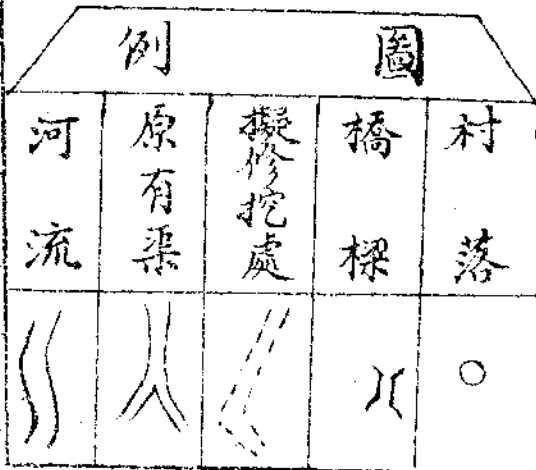 圖例
村落
橋樑
擬修挖處
原有渠
河流